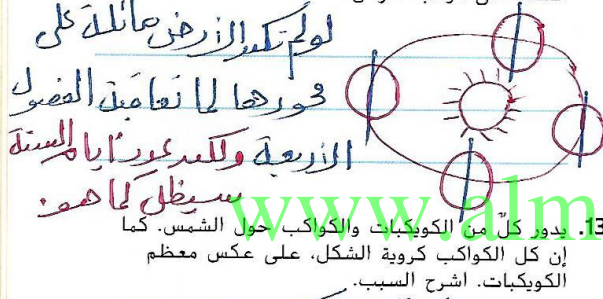 لو لم تكن الأرض مائلة على
محورها لما تعاقبت الفصول
الأربعة ولكن عدد أيام السنة
سيظل كما هو.
www.alm
13. يدور كلّ من الكويكبات والكواكب حول الشمس. كما
إن كل الكواكب كروية الشكل، على عكس معظم
الكويكبات. اشرح السبب.